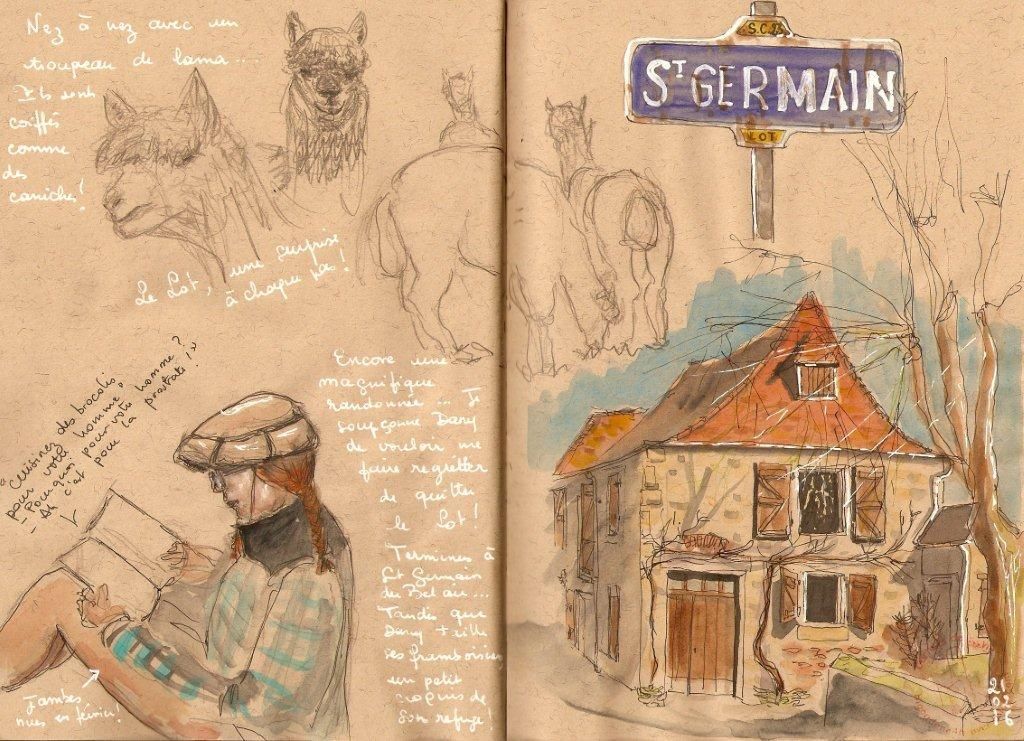 Nez à nez avec un
troupeau de lama...
Ils sont
coiffés
comme
des
caniches!
Le Lot, une surprise
à chaque pas!
"Cuisinez des brocolis
pour votre homme"
- Pourquoi pour votre homme?
- Ah c'est pour la prostate!
Jambes
nues en février!
Encore une
magnifique
randonnée... Je
soupçonne Dany
de vouloir me
faire regrétter
de quitter
le Lot!
Terminée à
St Germain
du Bel air...
Tandis que
Dany
ses framboisiers
un petit
croquis de
son refuge!
S.C.
ST GERMAIN
LOT
21
02
16